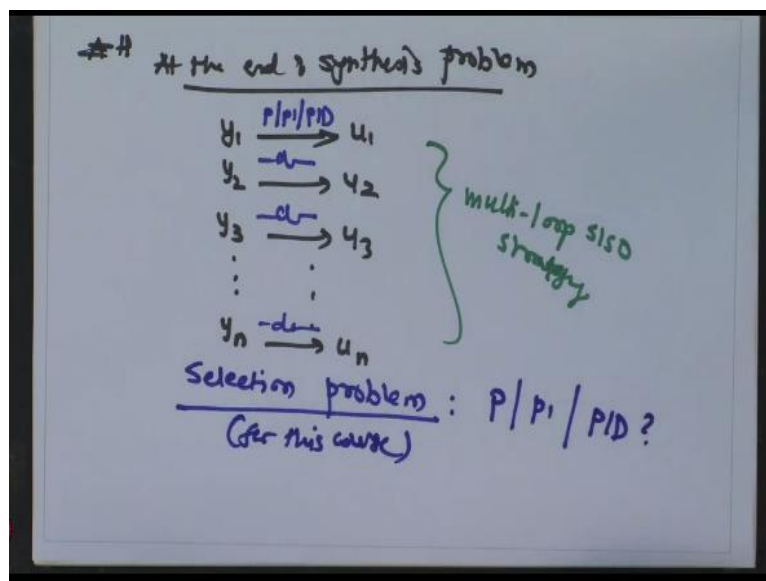 ## At the end of synthesis problem
P/PI/PID
y1 → u1
—do—
y2 → u2
—do—
y3 → u3
⋮ ⋮
—do—
yn → un
multi-loop SISO
strategy
Selection problem : P/PI/PID?
(for this course)